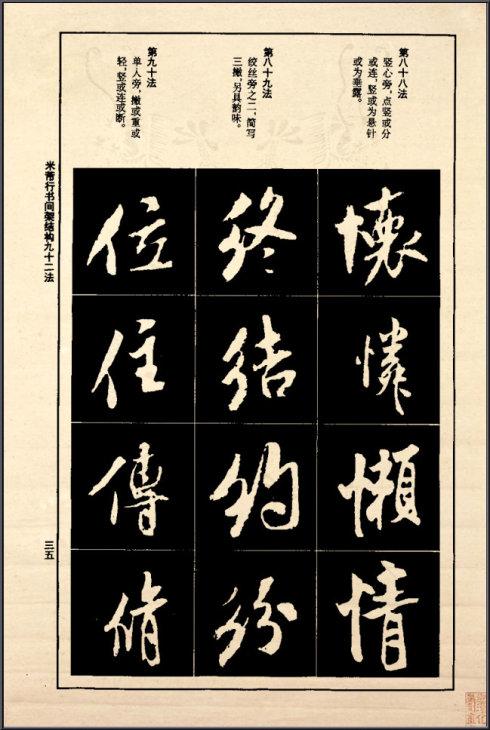 第八十八法
竖心旁，点竖或分
或连，竖或为悬针
或为垂露。
懷
憐
懶
情
第八十九法
绞丝旁之二，简写
三撇，另具韵味。
終
結
約
紛
第九十法
单人旁，撇或重或
轻，竖或连或断。
位
住
傳
脩
米芾行书间架结构九十二法
三五